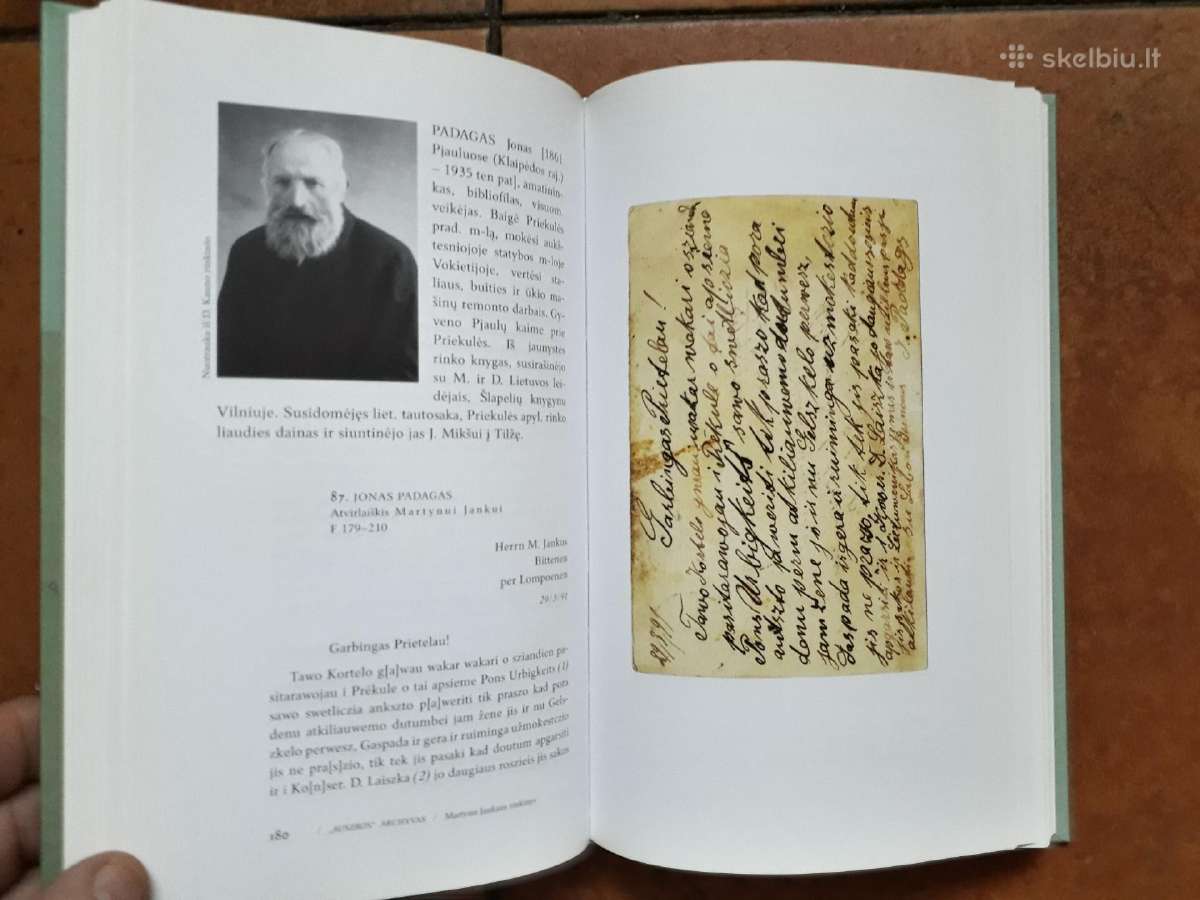 skelbiu.lt
PADAGAS Jonas [1861
Pjauluose (Klaipėdos raj.)
– 1935 ten pat], amatinin-
kas, bibliofilas, visuom.
veikėjas. Baigė Priekulės
prad. m-lą, mokėsi aukš-
tesniojoje statybos m-loje
Vokietijoje, vertėsi sta-
liaus, buities ir ūkio ma-
šinų remonto darbais. Gy-
veno Pjaulų kaime prie
Priekulės. Iš jaunystės
rinko knygas, susirašinėjo
su M. ir D. Lietuvos lei-
dėjais, Šlapelių knygynu
Vilniuje. Susidomėjęs liet. tautosaka, Priekulės apyl. rinko
liaudies dainas ir siuntinėjo jas J. Mikšui į Tilžę.
Nuotrauka iš D. Kauno rinkinio
87. JONAS PADAGAS
Atvirlaiškis Martynui Jankui
F 179–210
Herrn M. Jankus
Bittenen
per Lompoenen
29/3/91
Garbingas Prietelau!
Tawo Kortelo g[a]wau wakar wakari o sziandien pa-
sitarawojau i Prėkule o tai apsieme Pons Urbigkeits (1)
sawo swetliczia ankszto p[a]weriti tik praszo kad pora
denu atkiliauwemo dutumbei jam žene jis ir nu Gelž-
zkelo perwesz, Gaspada ir gera ir ruiminga užmokesczio
jis ne pra[s]zio, tik tek jis pasaki kad doutum apgarsiti
ir i Ko[n]ser. D. Laiszka (2) jo daugiaus roszieis jis sakos
180 / „AUSZROS“ ARCHYVAS / Martyno Jankaus rinkinys
29/3 91
Garbingas Prietelau!
Tawo Kortelo gawau wakar wakari o sziandien
pasitarawojau i Prėkule o tai apsieme
Pons Urbigkeits sawo swetliczia
ankszto paweriti tik praszo kad pora
denu atkiliauwemo dutumbei
jam žene jis ir nu Gelszkelo perwesz,
Gaspada ir gera ir ruiminga užmokesczio
jis ne praszo, tik tek jis pasaki kad doutum
apgarsiti ir i Konser. D. Laiszka jo daugiaus